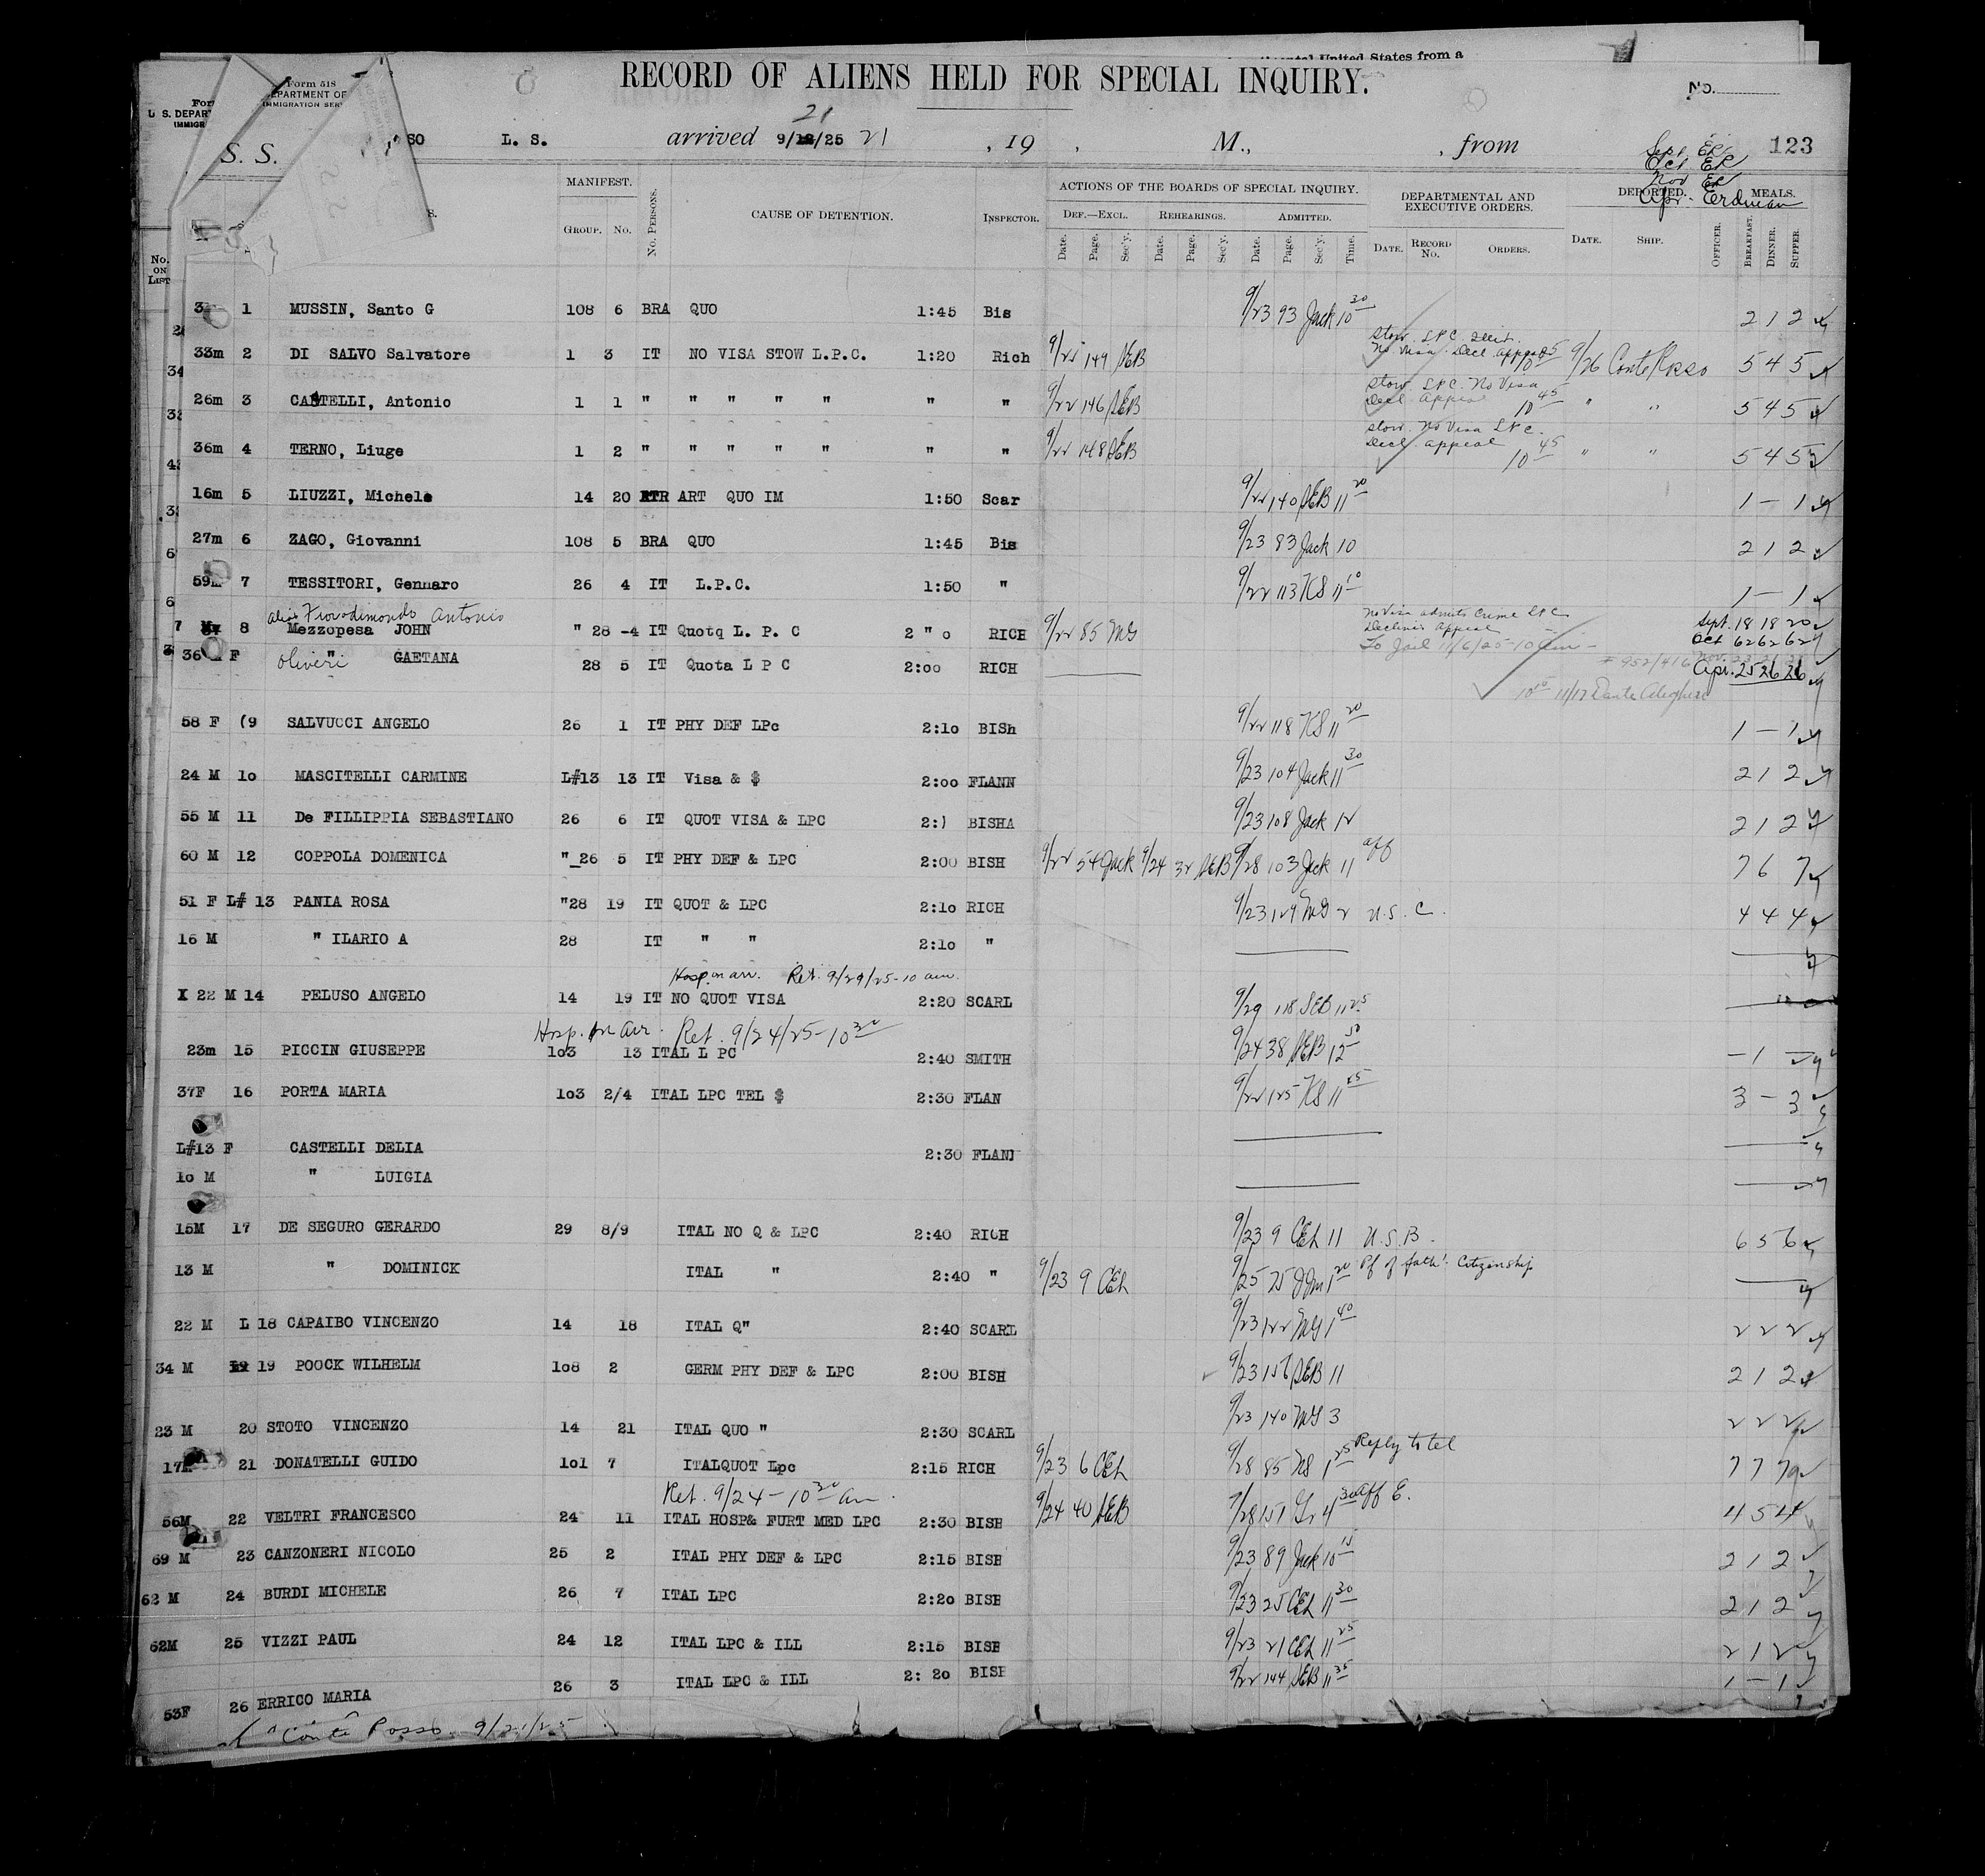 United States from a
Form 518
EPARTMENT OF
IMMIGRATION SER
For
U. S. DEPAR
IMMIGR
RECORD OF ALIENS HELD FOR SPECIAL INQUIRY.
No.
S. S. SO L. S. arrived 9/12/25 21 21 , 19 , M., , from 123
Sept ER
Oct ER
Nov ER
Apr. Erdman
MANIFEST. ACTIONS OF THE BOARDS OF SPECIAL INQUIRY. DEPARTMENTAL AND EXECUTIVE ORDERS. DEPORTED. MEALS.
No. ON LIST GROUP. No. No. PERSONS. CAUSE OF DETENTION. INSPECTOR. DEF.—EXCL. REHEARINGS. ADMITTED.
Date. Page. Sec'y. Date. Page. Sec'y. Date. Page. Sec'y. Time. DATE. RECORD No. ORDERS. DATE. SHIP. OFFICER. BREAKFAST. DINNER. SUPPER.
1 MUSSIN, Santo G 108 6 BRA QUO 1:45 Bis 9/23 93 Jack 10 30 2 1 2
Stow. LPC
33m 2 DI SALVO Salvatore 1 3 IT NO VISA STOW L.P.C. 1:20 Rich 149 SEB No Visa. Decl. appeal 9/26 Conte Rosso 5 4 5
Stow. LPC. No Visa
26m 3 CASTELLI, Antonio 1 1 " " " " " " " 9/22 146 SEB Decl. Appeal 10 45 " " 5 4 5
Stow. No Visa LPC.
36m 4 TERNO, Liuge 1 2 " " " " " " " 9/22 148 SEB Decl. appeal 10 45 " " 5 4 5
16m 5 LIUZZI, Michele 14 20 ART QUO IM 1:50 Scar 9/22 140 SEB 11 20 1 — 1
27m 6 ZAGO, Giovanni 108 5 BRA QUO 1:45 Bis 9/23 83 Jack 10 2 1 2
59m 7 TESSITORI, Gennaro 26 4 IT L.P.C. 1:50 " 9/22 113 KS 11 10 1 — 1
alias Fiorodimondo Antonio No Visa admits Crime LPC
8 Mezzopesa JOHN " 28 -4 IT Quotq L. P. C 2 " o RICH 9/22 85 MG Declines Appeal Sept. 18 18 20
To Jail 11/6/25-10 am Oct 62 62 62
36 F Oliveri " GAETANA 28 5 IT Quota L P C 2:oo RICH Apr. 25 26 26
11/12 Dante Aleghieri
58 F (9 SALVUCCI ANGELO 26 1 IT PHY DEF LPc 2:1o BISh 9/22 118 KS 11 20 1 — 1
24 M 1o MASCITELLI CARMINE L#13 13 IT Visa & $ 2:oo FLANN 9/23 104 Jack 11 30 2 1 2
55 M 11 De FILLIPPIA SEBASTIANO 26 6 IT QUOT VISA & LPC 2:) BISHA 9/23 108 Jack 12 2 1 2
60 M 12 COPPOLA DOMENICA "_26 5 IT PHY DEF & LPC 2:00 BISH 9/22 54 Jack 9/24 32 SEB 9/28 103 Jack 11 aff 7 6 7
51 F L# 13 PANIA ROSA "28 19 IT QUOT & LPC 2:1o RICH 9/23 129 MG 2 U.S.C. 4 4 4
16 M " ILARIO A 28 IT " " 2:1o "
Hosp. on arr. Ret. 9/29/25-10 am.
I 22 M 14 PELUSO ANGELO 14 19 IT NO QUOT VISA 2:20 SCARL 9/29 118 SEB 11 25
Hosp. on Arr. Ret. 9/24/25-10 30
23m 15 PICCIN GIUSEPPE 1o3 13 ITAL L PC 2:40 SMITH 9/24 38 SEB 12 50 — 1 —
37F 16 PORTA MARIA 1o3 2/4 ITAL LPC TEL $ 2:30 FLAN 9/22 125 KS 11 55 3 — 3
L#13 F CASTELLI DELIA 2:30 FLANI
1o M " LUIGIA
15M 17 DE SEGURO GERARDO 29 8/9 ITAL NO Q & LPC 2:40 RICH 9/23 9 CEL 11 U.S.B. 6 5 6
13 M " DOMINICK ITAL " 2:40 " 9/23 9 CEL 9/25 75 1 20 Pf of fath's Citizenship
22 M L 18 CAPAIBO VINCENZO 14 18 ITAL Q" 2:40 SCARL 9/23 122 MG 1 40 2 2 2
34 M 19 POOCK WILHELM 1o8 2 GERM PHY DEF & LPC 2:00 BISH 9/23 156 SEB 11 2 1 2
23 M 20 STOTO VINCENZO 14 21 ITAL QUO " 2:30 SCARL 9/23 140 MG 3 2 2 2
17 21 DONATELLI GUIDO 1o1 7 ITALQUOT Lpc 2:15 RICH 9/23 6 CEL 9/28 85 KS 1 Reply to tel 7 7 7
Ret. 9/24-10 30 am.
56M 22 VELTRI FRANCESCO 24 11 ITAL HOSP& FURT MED LPC 2:30 BISH 9/24 40 SEB 9/28 151 4 30 aff E. 4 5 4
69 M 23 CANZONERI NICOLO 25 2 ITAL PHY DEF & LPC 2:15 BISH 9/23 89 Jack 10 15 2 1 2
62 M 24 BURDI MICHELE 26 7 ITAL LPC 2:2o BISH 9/23 25 CEL 11 30 2 1 2
62M 25 VIZZI PAUL 24 12 ITAL LPC & ILL 2:15 BISH 9/23 21 CEL 11 25 2 1 2
53F 26 ERRICO MARIA 26 3 ITAL LPC & ILL 2: 20 BISH 9/22 144 SEB 11 35 1 — 1
"Conte Rosso 9/21/25